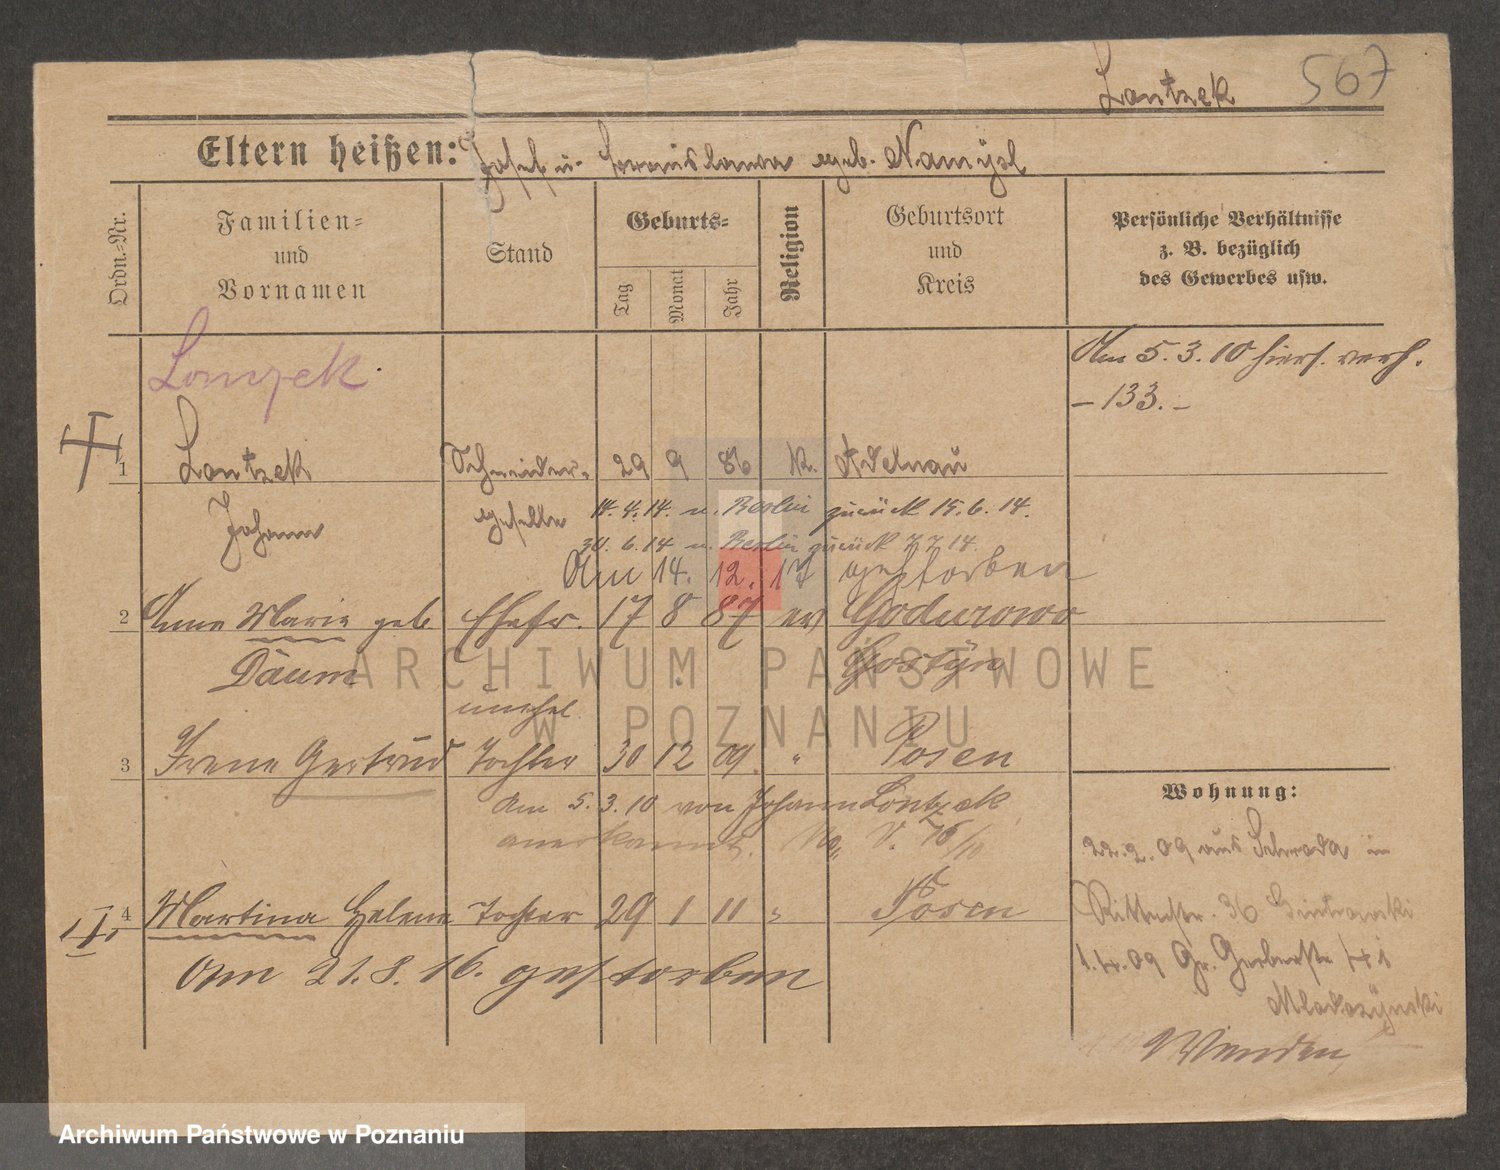 Lontzek 567
Eltern heißen: Josef u. Bronislawa geb. Namysl
Ordn.-Nr.
Familien-
und
Vornamen
Stand
Geburts-
Tag
Monat
Jahr
Religion
Geburtsort
und
Kreis
Persönliche Verhältnisse
z. B. bezüglich
des Gewerbes usw.
Lonzek
Am 5.3.10 hiers. verh.
– 133. –
1 Lontzek Schneider- 29 9 86 K. Adelnau
Johann geselle 14.4.14. n. Berlin zurück 15.6.14.
30.6.14 n. Berlin zurück 7.7.14.
Am 14. 12. 17 gestorben
2 Anna Marie geb Ehefr. 17 8 87 ev Godurowo
Daum Gostyn
unehel
3 Irene Gertrud Tochter 30 12 09 " Posen
Am 5.3.10 von Johann Lontzek
anerkannt. V. 76/10
4 Martina Helene Tochter 29 1 11 " Posen
Am 21.8.16. gestorben
Wohnung:
22.2.09 aus Schroda in
Ritterstr. 36
1.4.09 Gr. Gerberstr 41
Wenden
ARCHIWUM PAŃSTWOWE
W POZNANIU
Archiwum Państwowe w Poznaniu